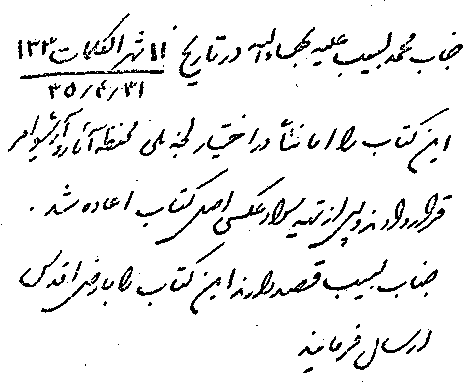 جناب محمد لبیب علیه بهاءالله در تاریخ ۱۱ شهر الکلمات ۱۳۳
۳۵/۴/۳۱
این کتاب را امانتاً در اختیار لجنه ملی محفظه آثار و آرشیو امر
قرار دادند و پس از تهیه سواد عکسی اصل کتاب اعاده شد .
جناب لبیب قصد دارند این کتاب را بارض اقدس
ارسال فرمایند